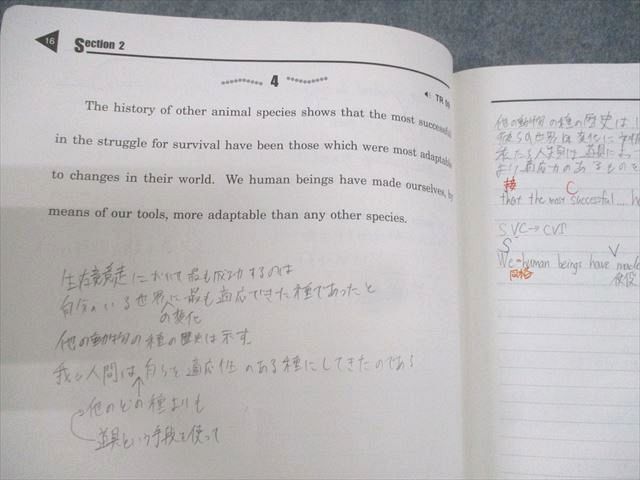 16
Section 2
4
TR
The history of other animal species shows that the most successful
in the struggle for survival have been those which were most adaptable
to changes in their world. We human beings have made ourselves, by
means of our tools, more adaptable than any other species.
生存競走において最も成功するのは
自分のいる世界へ最も適応できた種であったと
の変化
他の動物の種の歴史は示す。
我々人間は自らを適応性のある種にしてきたのである
他のどの種よりも
道具という手段を使って
他の動物の種の歴史は
世界は変化に
人間は道具によ
より適応力のあるものを
接
C
that the most successful....
SVC→CVS
S
V
We=human beings have made
同格
使役